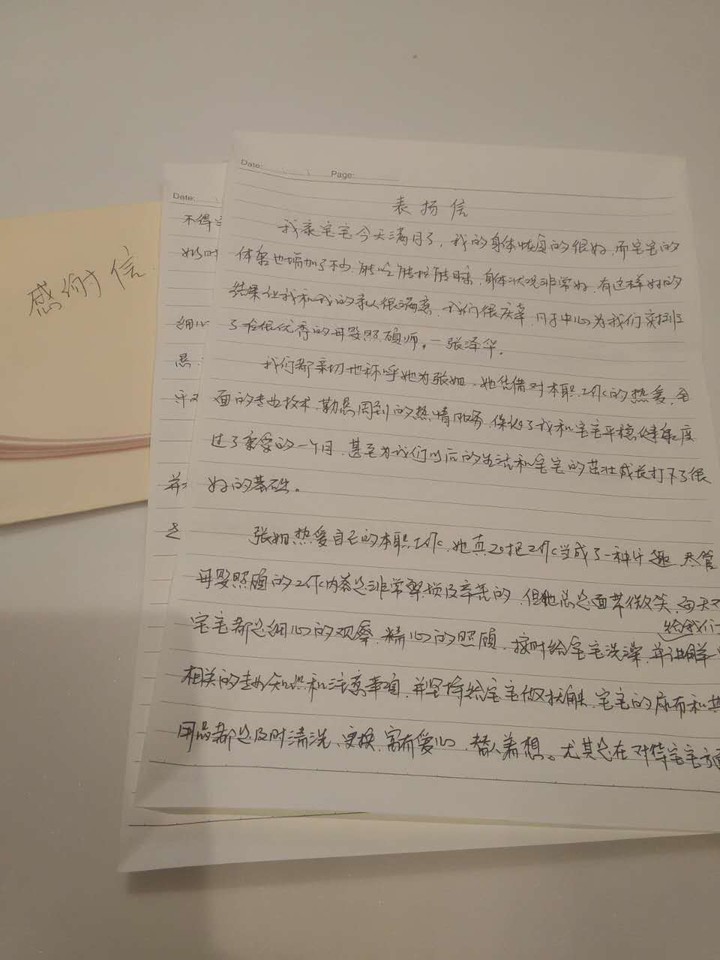 感谢信
Date:
不得
细心
并
Date: Page:
表扬信
我家宝宝今天满月了，我的身体恢复的很好，而宝宝的
体重也增加了不少，能吃能拉能睡，身体状况非常好，有这样好的
结果让我和我的家人很满意，我们很庆幸，月子中心为我们安排
了一个很优秀的母婴照顾师。—张泽华。
我们都亲切地称呼她为张姐，她凭借对本职工作的热爱，全
面的专业技术，勤恳周到的热情服务，保证了我和宝宝平稳、健康度
过了亲爱的一个月，甚至为我们以后的生活和宝宝的茁壮成长打下了很
好的基础。
张姐热爱自己的本职工作，她真正把工作当成了一种乐趣，尽管
母婴照顾的工作内容是非常繁琐及辛苦的，但她总是面带微笑，每天
宝宝都是细心的观察，精心的照顾，按时给宝宝洗澡，并讲解
给我们
相关的专业知识和注意事项，并坚持给宝宝做抚触，宝宝的尿布和其
用品都是及时清洗、更换，富有爱心，替人着想。尤其是在对待宝宝方面